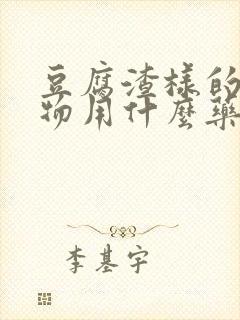 豆腐渣樣的
物用什麼藥
李基宇